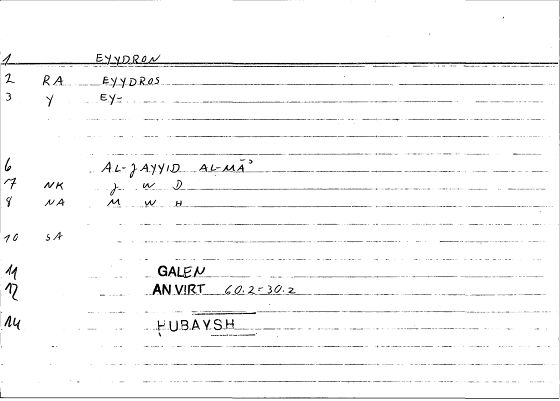 1 EYYDRON
2 RA EYYDROS
3 Y EY-
6 AL-JAYYID AL-MĀʾ
7 NK J W D
8 NA M W H
10 SA
11 GALEN
12 AN VIRT 60.2=30.2
14 HUBAYSH